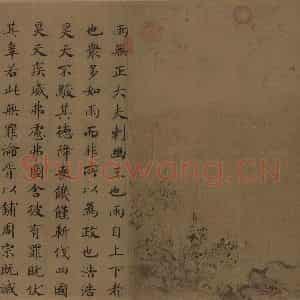 雨無正大夫刺幽王也雨自上下者
也衆多如雨而非所以為政也浩浩
昊天不駿其德降喪饑饉斬伐四國
昊天疾威弗慮弗圖舍彼有罪既伏
其辜若此無罪淪胥以鋪周宗既滅
Shufawang.CN